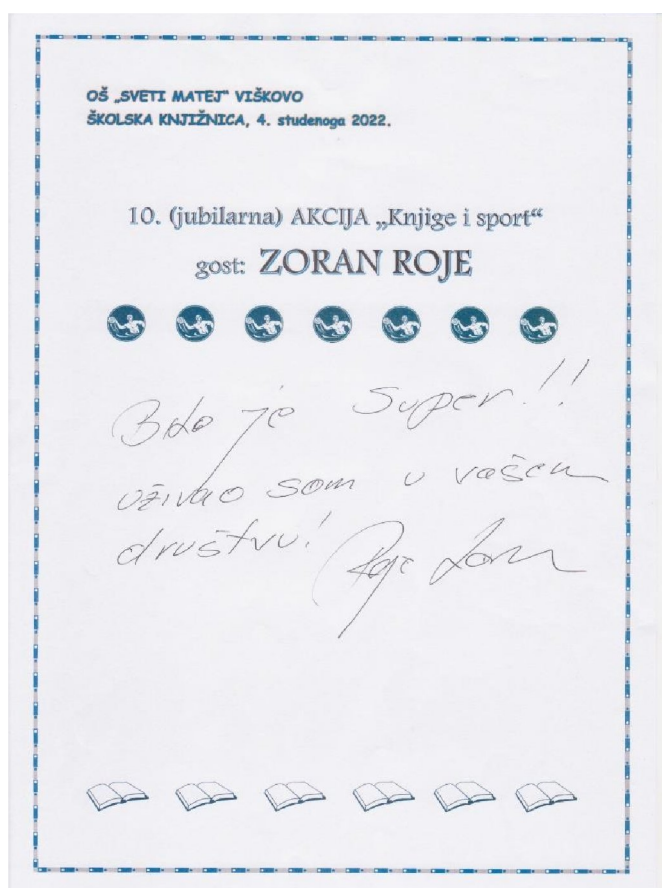 OŠ „SVETI MATEJ“ VIŠKOVO
ŠKOLSKA KNJIŽNICA, 4. studenoga 2022.
10. (jubilarna) AKCIJA „Knjige i sport“
gost: ZORAN ROJE
Bilo je super!!
uživao sam u vašem
društvu! Roje Zoran